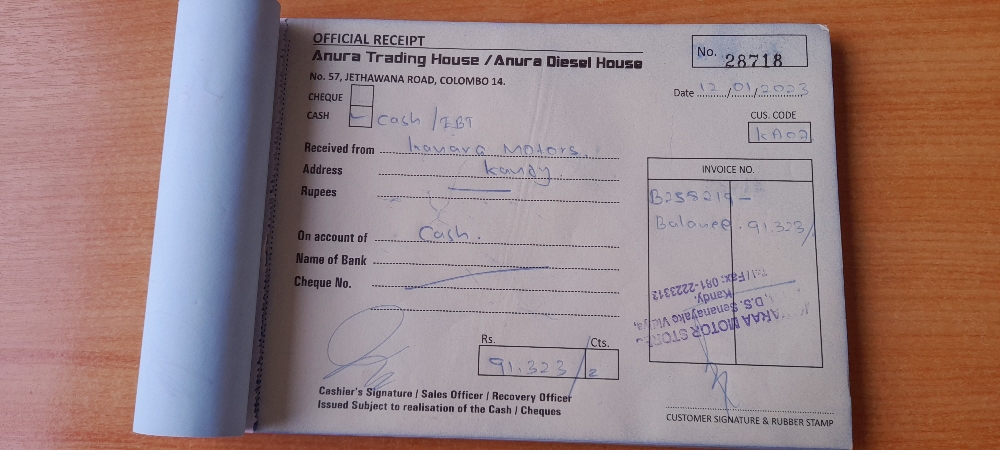 OFFICIAL RECEIPT
Anura Trading House / Anura Diesel House
No. 57, JETHAWANA ROAD, COLOMBO 14.
No. 28718
Date 12/01/2023
CHEQUE
CASH Cash /
CUS. CODE
KA02
Received from Motors.
Address Kandy.
Rupees
On account of Cash.
Name of Bank
Cheque No.
INVOICE NO.
B258219-
Balance. 91.323/
MOTOR STORE
D.S. Senanayake
Kandy.
Tel/ Fax: 081-2223313
Rs. Cts.
91.323/
Cashier's Signature / Sales Officer / Recovery Officer
Issued Subject to realisation of the Cash / Cheques
CUSTOMER SIGNATURE & RUBBER STAMP